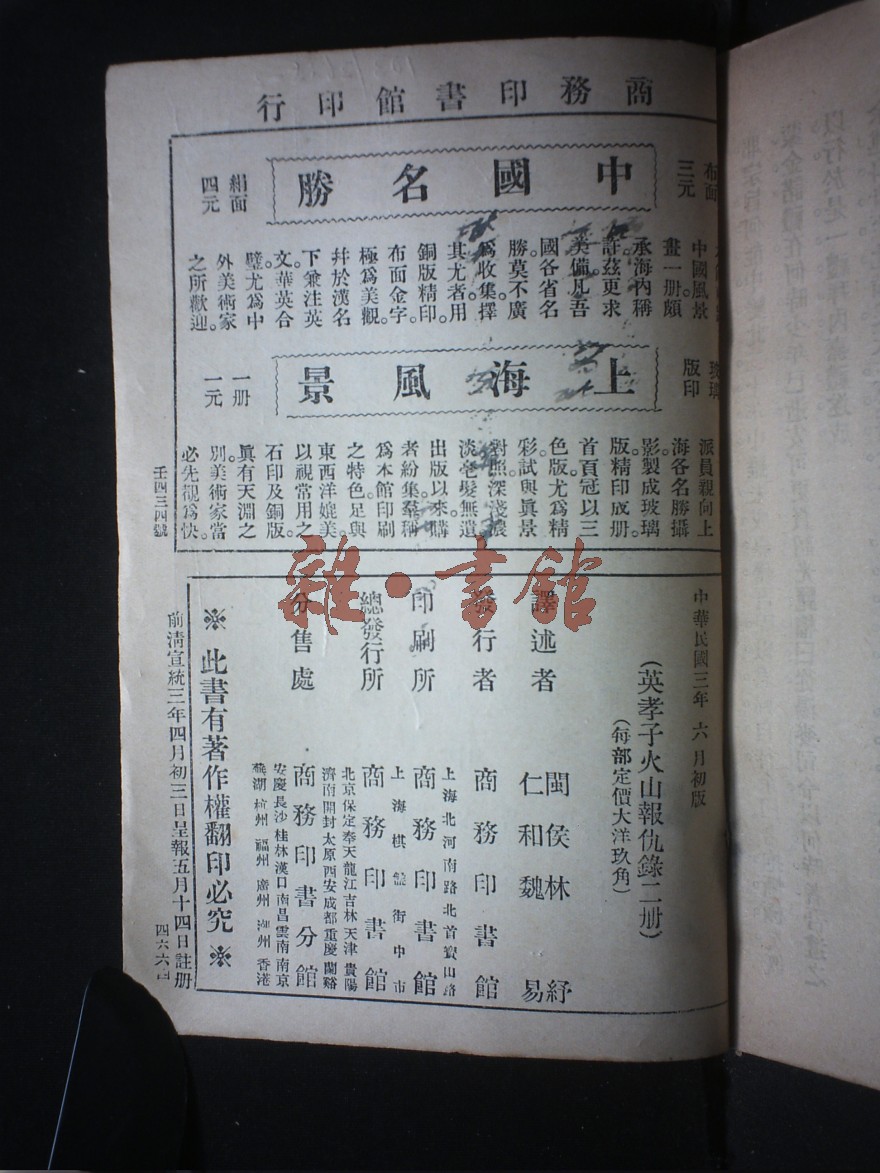 商務印書館印行
布面
三元
中國名勝
絹面
四元
中國風景
畫一册頗
承海內稱
許茲更求
美備凡吾
國各省名
勝莫不廣
爲收集擇
其尤者用
銅版精印。
布面金字。
極爲美觀
幷於漢名
下兼注英
文華英合
璧尤爲中
外美術家
之所歡迎。
玻璃
版印
上海風景
一册
一元
派員親向上
海各名勝攝
影製成玻璃
版精印成册。
首頁冠以三
色版尤爲精
彩試與眞景
對照深淺濃
淡毫髮無遺
出版以來購
者紛集羣稱
爲本館印刷
之特色足與
東西洋媲美。
以視常用之
石印及銅版。
眞有天淵之
別。美術家當
必先覩爲快。
壬四三四號
中華民國三年六月初版
（英孝子火山報仇錄二册）
（每部定價大洋玖角）
譯述者
閩侯林紓
仁和魏易
發行者
商務印書館
上海北河南路北首寶山路
印刷所
商務印書館
上海棋盤街中市
總發行所
商務印書館
北京保定奉天龍江吉林天津貴陽
濟南開封太原西安成都重慶蘭谿
分售處
商務印書分館
安慶長沙桂林漢口南昌雲南南京
蕪湖杭州福州廣州潮州香港
※此書有著作權翻印必究※
前淸宣統三年四月初三日呈報五月十四日註册
雜·書館